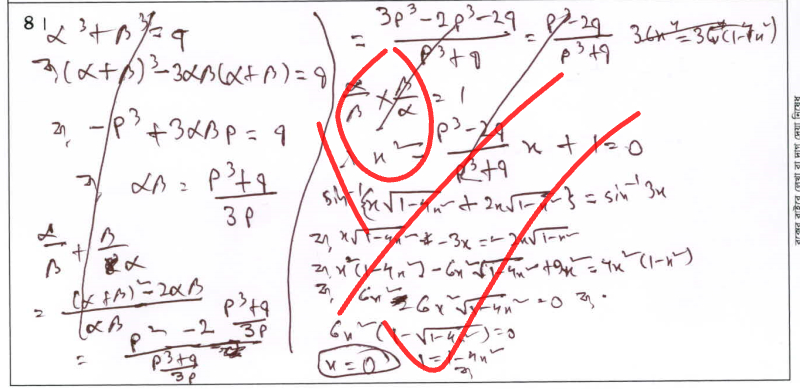 8।
α³ + β³ = q
বা, (α+β)³ - 3αβ(α+β) = q
বা, -p³ + 3αβp = q
বা, αβ = (p³+q)/3p
α/β + β/α
= ((α+β)² - 2αβ)/αβ
= (p² - 2 (p³+q)/3p)/((p³+q)/3p)
= (3p³ - 2p³ - 2q)/(p³+q) = (p³ - 2q)/(p³+q)
α/β × β/α = 1
x² - (p³ - 2q)/(p³+q) x + 1 = 0
sin⁻¹{x√(1-4x²) + 2x√(1-x²)} = sin⁻¹ 3x
বা, x√(1-4x²) - 3x = - 2x√(1-x²)
বা, x²(1-4x²) - 6x²√(1-4x²) + 9x² = 4x²(1-x²)
বা, 6x² - 6x²√(1-4x²) = 0 বা,
6x²(1 - √(1-4x²)) = 0
x = 0
1 = 1 - 4x²
বা,